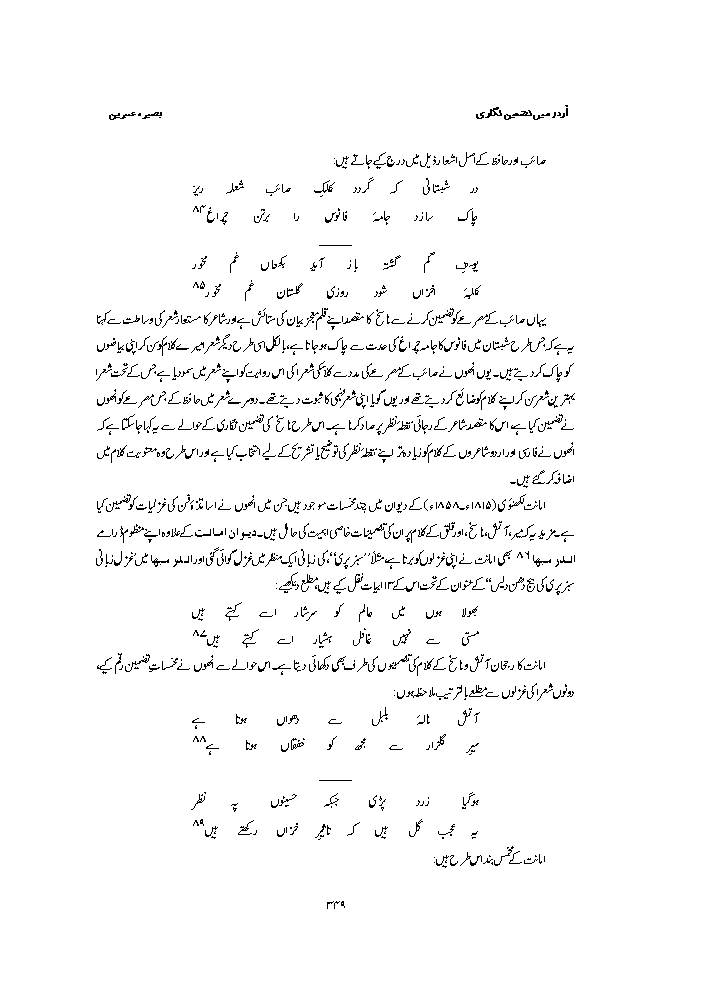 اُردو میں تضمین نگاری بصیرہ عنبرین
صائب اور حافظ کے اصل اشعار ذیل میں درج کیے جاتے ہیں:
در شبستانی کہ گردد کلکِ صائب شعلہ ریز
چاک سازد جامۂ فانوس را برتن چراغ۸۴
یوسفِ گم گشتہ باز آید بکنعاں غم مخور
کلبۂ احزاں شود روزی گلستان غم مخور۸۵
یہاں صائب کے مصرعے کو تضمین کرنے سے ناسخ کا مقصد اپنے قلمِ معجز بیان کی ستائش ہے اور شاعر کا مستعار شعر کی وساطت سے کہنا
یہ ہے کہ جس طرح شبستان میں فانوس کا جامہ چراغ کی حدت سے چاک ہو جاتا ہے، بالکل اسی طرح دیگر شعرا میرے کلام کو سن کر اپنی بیاضوں
کو چاک کر دیتے ہیں۔ یوں انھوں نے صائب کے مصرعے کی مدد سے کلاسیکی شعرا کی اس روایت کو اپنے شعر میں سمو دیا ہے جس کے تحت شعرا
بہترین شعر سن کر اپنے کلام کو ضائع کر دیتے تھے اور یوں گویا اپنی شعر فہمی کا ثبوت دیتے تھے۔ دوسرے شعر میں حافظ کے جس مصرعے کو انھوں
نے تضمین کیا ہے اس کا مقصد شاعر کے رجائی نقطۂ نظر پر صاد کرنا ہے۔ اس طرح ناسخ کی تضمین نگاری کے حوالے سے یہ کہا جا سکتا ہے کہ
انھوں نے فارسی اور اردو شاعروں کے کلام کو زیادہ تر اپنے نقطۂ نظر کی توضیح یا تشریح کے لیے انتخاب کیا ہے اور اس طرح وہ معنویت کلام میں
اضافہ کر گئے ہیں۔
امانت لکھنوی (۱۸۱۵ء۔۱۸۵۸ء) کے دیوان میں چند مخمسات موجود ہیں جن میں انھوں نے اساتذۂ فن کی غزلیات کو تضمین کیا
ہے۔ مزید یہ کہ میر، آتش، ناسخ، اور قلق کے کلام پر ان کی تضمینات خاصی اہمیت کی حامل ہیں۔ دیوان امانت کے علاوہ اپنے منظوم ڈرامے
اندر سبھا۸۶ بھی امانت نے اپنی غزلوں کو برتا ہے، مثلاً ’’سبز پری‘‘، کی زبانی ایک منظر میں غزل گوائی گئی اور اندر سبھا میں ’’غزل زبانی
سبز پری کی بیچ دُھن دیس‘‘ کے عنوان کے تحت اس کے ۱۳ ابیات نقل کیے ہیں، مطلع دیکھیے:
بھولا ہوں میں عالم کو سرشار اسے کہتے ہیں
مستی سے نہیں غافل ہشیار اسے کہتے ہیں۸۷
امانت کا رجحان آتش و ناسخ کے کلام کی تضمینوں کی طرف بھی دکھائی دیتا ہے۔ اس حوالے سے انھوں نے مخمساتِ تضمین رقم کیے،
دونوں شعرا کی غزلوں سے مطلعے بالترتیب ملاحظہ ہوں:
آتش نالۂ بلبل سے دھواں ہوتا ہے
سیرِ گلزار سے مجھ کو خفقاں ہوتا ہے۸۸
ہو گیا زرد پڑی جبکہ حسینوں پہ نظر
یہ عجب گل ہیں کہ تاثیرِ خزاں رکھتے ہیں۸۹
امانت کے مخمس بند اس طرح ہیں:
۳۳۹